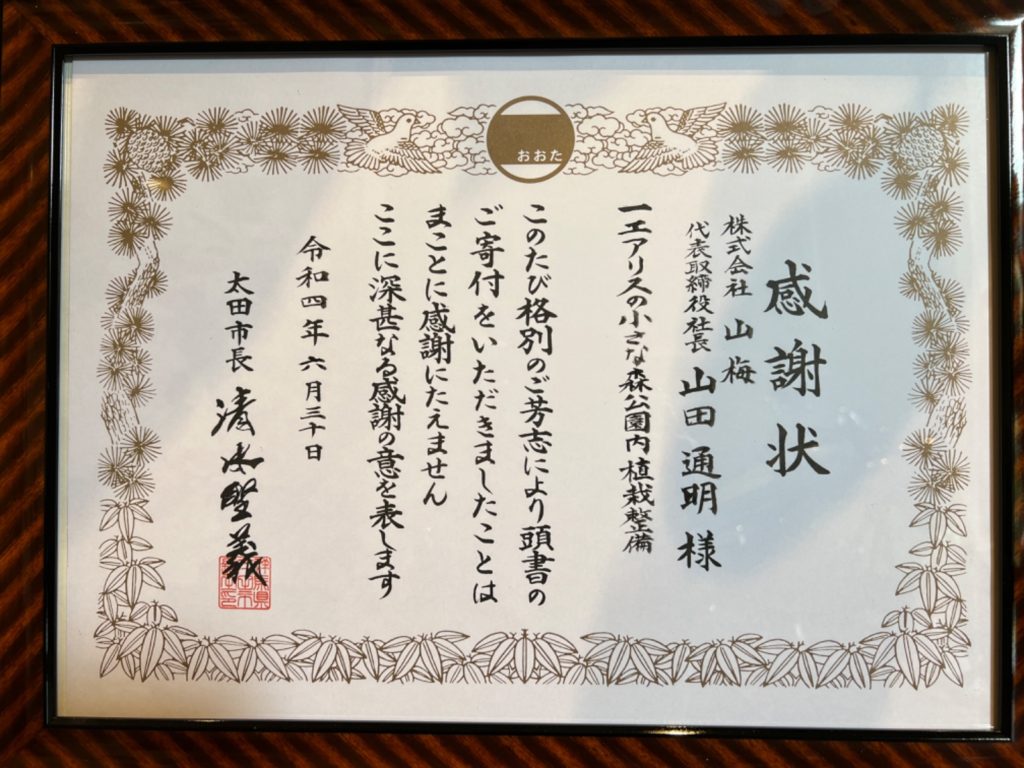 おおた
感謝状
株式会社 山梅
代表取締役社長 山田 通明 様
一エアリスの小さな森公園内植栽整備
このたび格別のご芳志により頭書の
ご寄付をいただきましたことは
まことに感謝にたえません
ここに深甚なる感謝の意を表します
令和四年六月三十日
太田市長 清水聖義